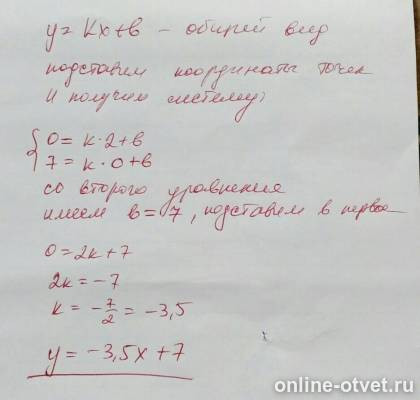 y = kx+b – общий вид
подставим координаты точек
и получим систему:
0 = k·2+b
7 = k·0+b
со второго уравнения
имеем b=7, подставим в первое
0 = 2k+7
2k = -7
k = -7/2 = -3,5
y = -3,5x+7
online-otvet.ru